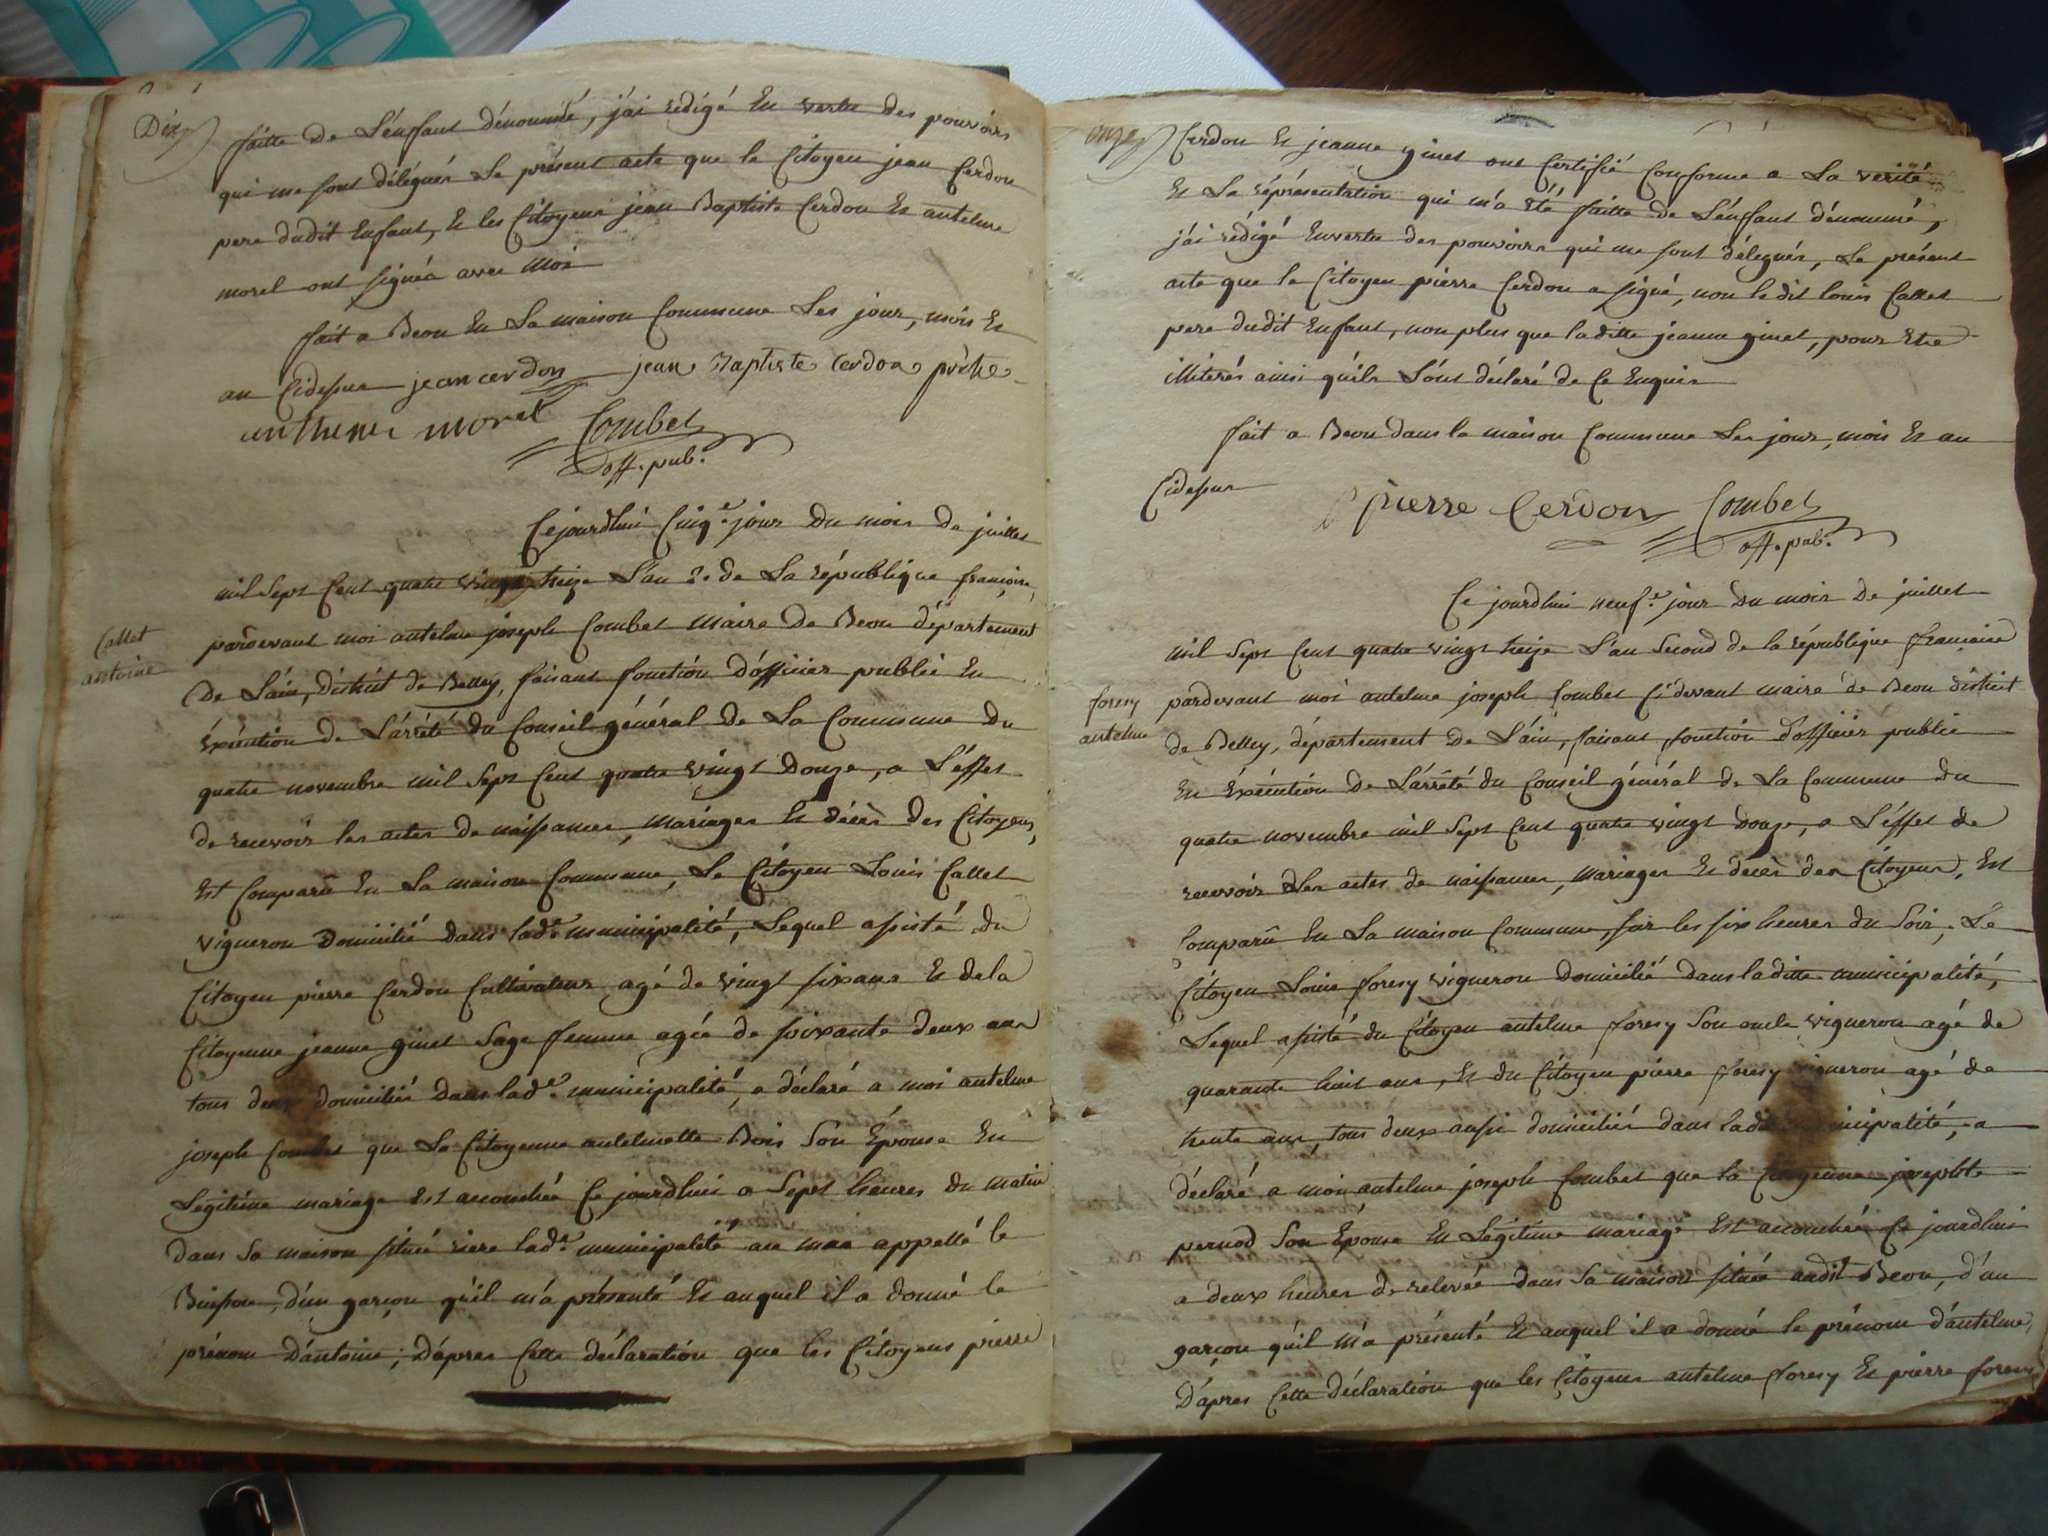 Dix
faitte de L'enffant dénommé, j'ai rédigé En vertu des pouvoirs
qui me sont délégués Le présent acte que le Citoyen jean Cerdon
pere dudit Enfant, Et les Citoyens jean Baptiste Cerdon Et antelme
morel ont signés avec moi
fait a Beon En La maison Commune Les jour, mois Et
an Cidessus jean cerdon jean Baptiste Cerdon prêtre
anthelme morel Combet
off. pub.
Cejourdhui Cinq.e jour du mois de juillet
mil Sept Cent quatre vingt treize L'an 2.e de La république françoise,
Callet
antoine
pardevant moi antelme joseph Combet Maire de Beon département
De L'ain, district de Belley, faisant fonction d'officier public En
Exécution de L'arrêté du Conseil général de La Commune du
quatre novembre mil Sept Cent quatre vingt Douze, a L'effet
de recevoir les actes de naissances, Mariages Et décès des Citoyens,
Est Comparû En La maison Commune, Le Citoyen Louis Callet
vigneron domicilié dans lad.e municipalité, Lequel assisté du
Citoyen pierre Cerdon Cultivateur agé de vingt six ans Et de la
Citoyenne jeanne ginet Sage femme agée de soixante deux ans
tous deux domiciliés dans lad.e municipalité, a déclaré a moi antelme
joseph Combet que La Citoyenne antelmette Bois Son Épouse En
Légitime mariage Est accouchée Ce jourdhui a Sept heures du matin
dans Sa maison située riere lad.e municipalité au mas appellé le
Buisson, d'un garçon qu'il m'a présenté Et auquel il a donné le
prénom D'antoine; D'apres Cette déclaration que les Citoyens pierre
onze
Cerdon Et jeanne ginet ont Certifié Conforme a La verité
Et La réprésentation qui m'a été faitte de L'enffant dénommé,
j'ai rédigé En vertu des pouvoirs qui me sont délegués, Le présent
acte que le Citoyen pierre Cerdon a signé, non ledit louis Callet
pere dudit Enfant, non plus que laditte jeanne ginet, pour Etre
illiterés ainsi qu'ils L'ont déclaré de Ce Enquis
fait a Beon dans la maison Commune Les jour, mois Et an
Cidessus
pierre Cerdon Combet
off. pub.
Ce jourdhui neuf.e jour du mois de juillet
mil Sept Cent quatre vingt treize L'an Second de la république françoise
foresy
antelme
pardevant moi antelme joseph Combet Cidevant maire de Beon district
de Belley, département de L'ain, faisant fonction d'officier public
En Exécution de L'arrêté du Conseil général de La Commune du
quatre novembre mil Sept Cent quatre vingt Douze, a L'effet de
recevoir Les actes de naissances, Mariages Et décès des Citoyens, Est
Comparû En La maison Commune, sur les six heures du Soir, Le
Citoyen Louis foresy vigneron domicilié dans laditte municipalité,
Lequel assisté du Citoyen antelme foresy Son oncle vigneron agé de
quarante huit ans, Et du Citoyen pierre foresy vigneron agé de
trente ans, tous deux aussi domiciliés dans laditte municipalité, a
déclaré a moi antelme joseph Combet que la Citoyenne josephte
pernod Son Épouse En Légitime mariage Est accouchée Ce jourdhui
a deux heures de relevée dans Sa maison située audit Beon, d'un
garçon qu'il m'a présenté Et auquel il a donné le prénom d'antelme,
D'apres Cette déclaration que les Citoyens antelme foresy Et pierre foresy